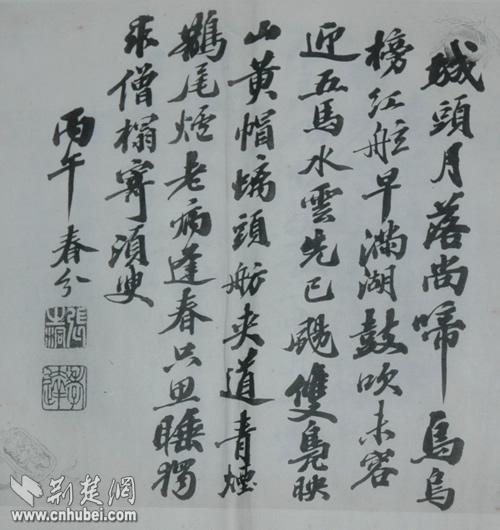 城頭月落尚啼烏烏
榜紅舷早滿湖鼓吹未容
迎五馬水雲先已颺雙鳧映
山黄帽螭頭舫夾道青煙
鵲尾爐老病逢春只思睡獨
求僧榻寄須臾
丙午春分
荆楚網
www.cnhubei.com